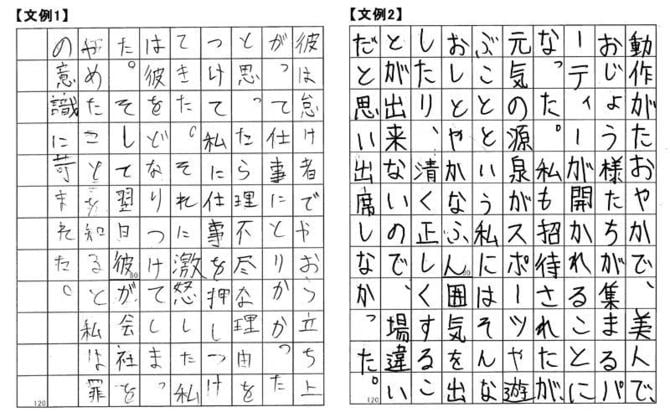 【文例1】
彼は怠け者でやおら立ち上
がって仕事にとりかかった
と思ったら理不尽な理由を
つけて私に仕事を押しつけ
てきた。それに激怒した私
は彼をどなりつけてしまっ
た。そして翌日彼が会社を
やめたことを知ると私は罪
の意識に苛まれた。
120
【文例2】
動作がたおやかで、美人で、
おじょう様たちが集まるパ
ーティーが開かれることに
なった。私も招待されたが、
元気の源泉がスポーツや遊
ぶことという私にはそんな
おしとやかなふん囲気を出
したり、清く正しくするこ
とが出来ないので、場違い
だと思い出席しなかった。
120